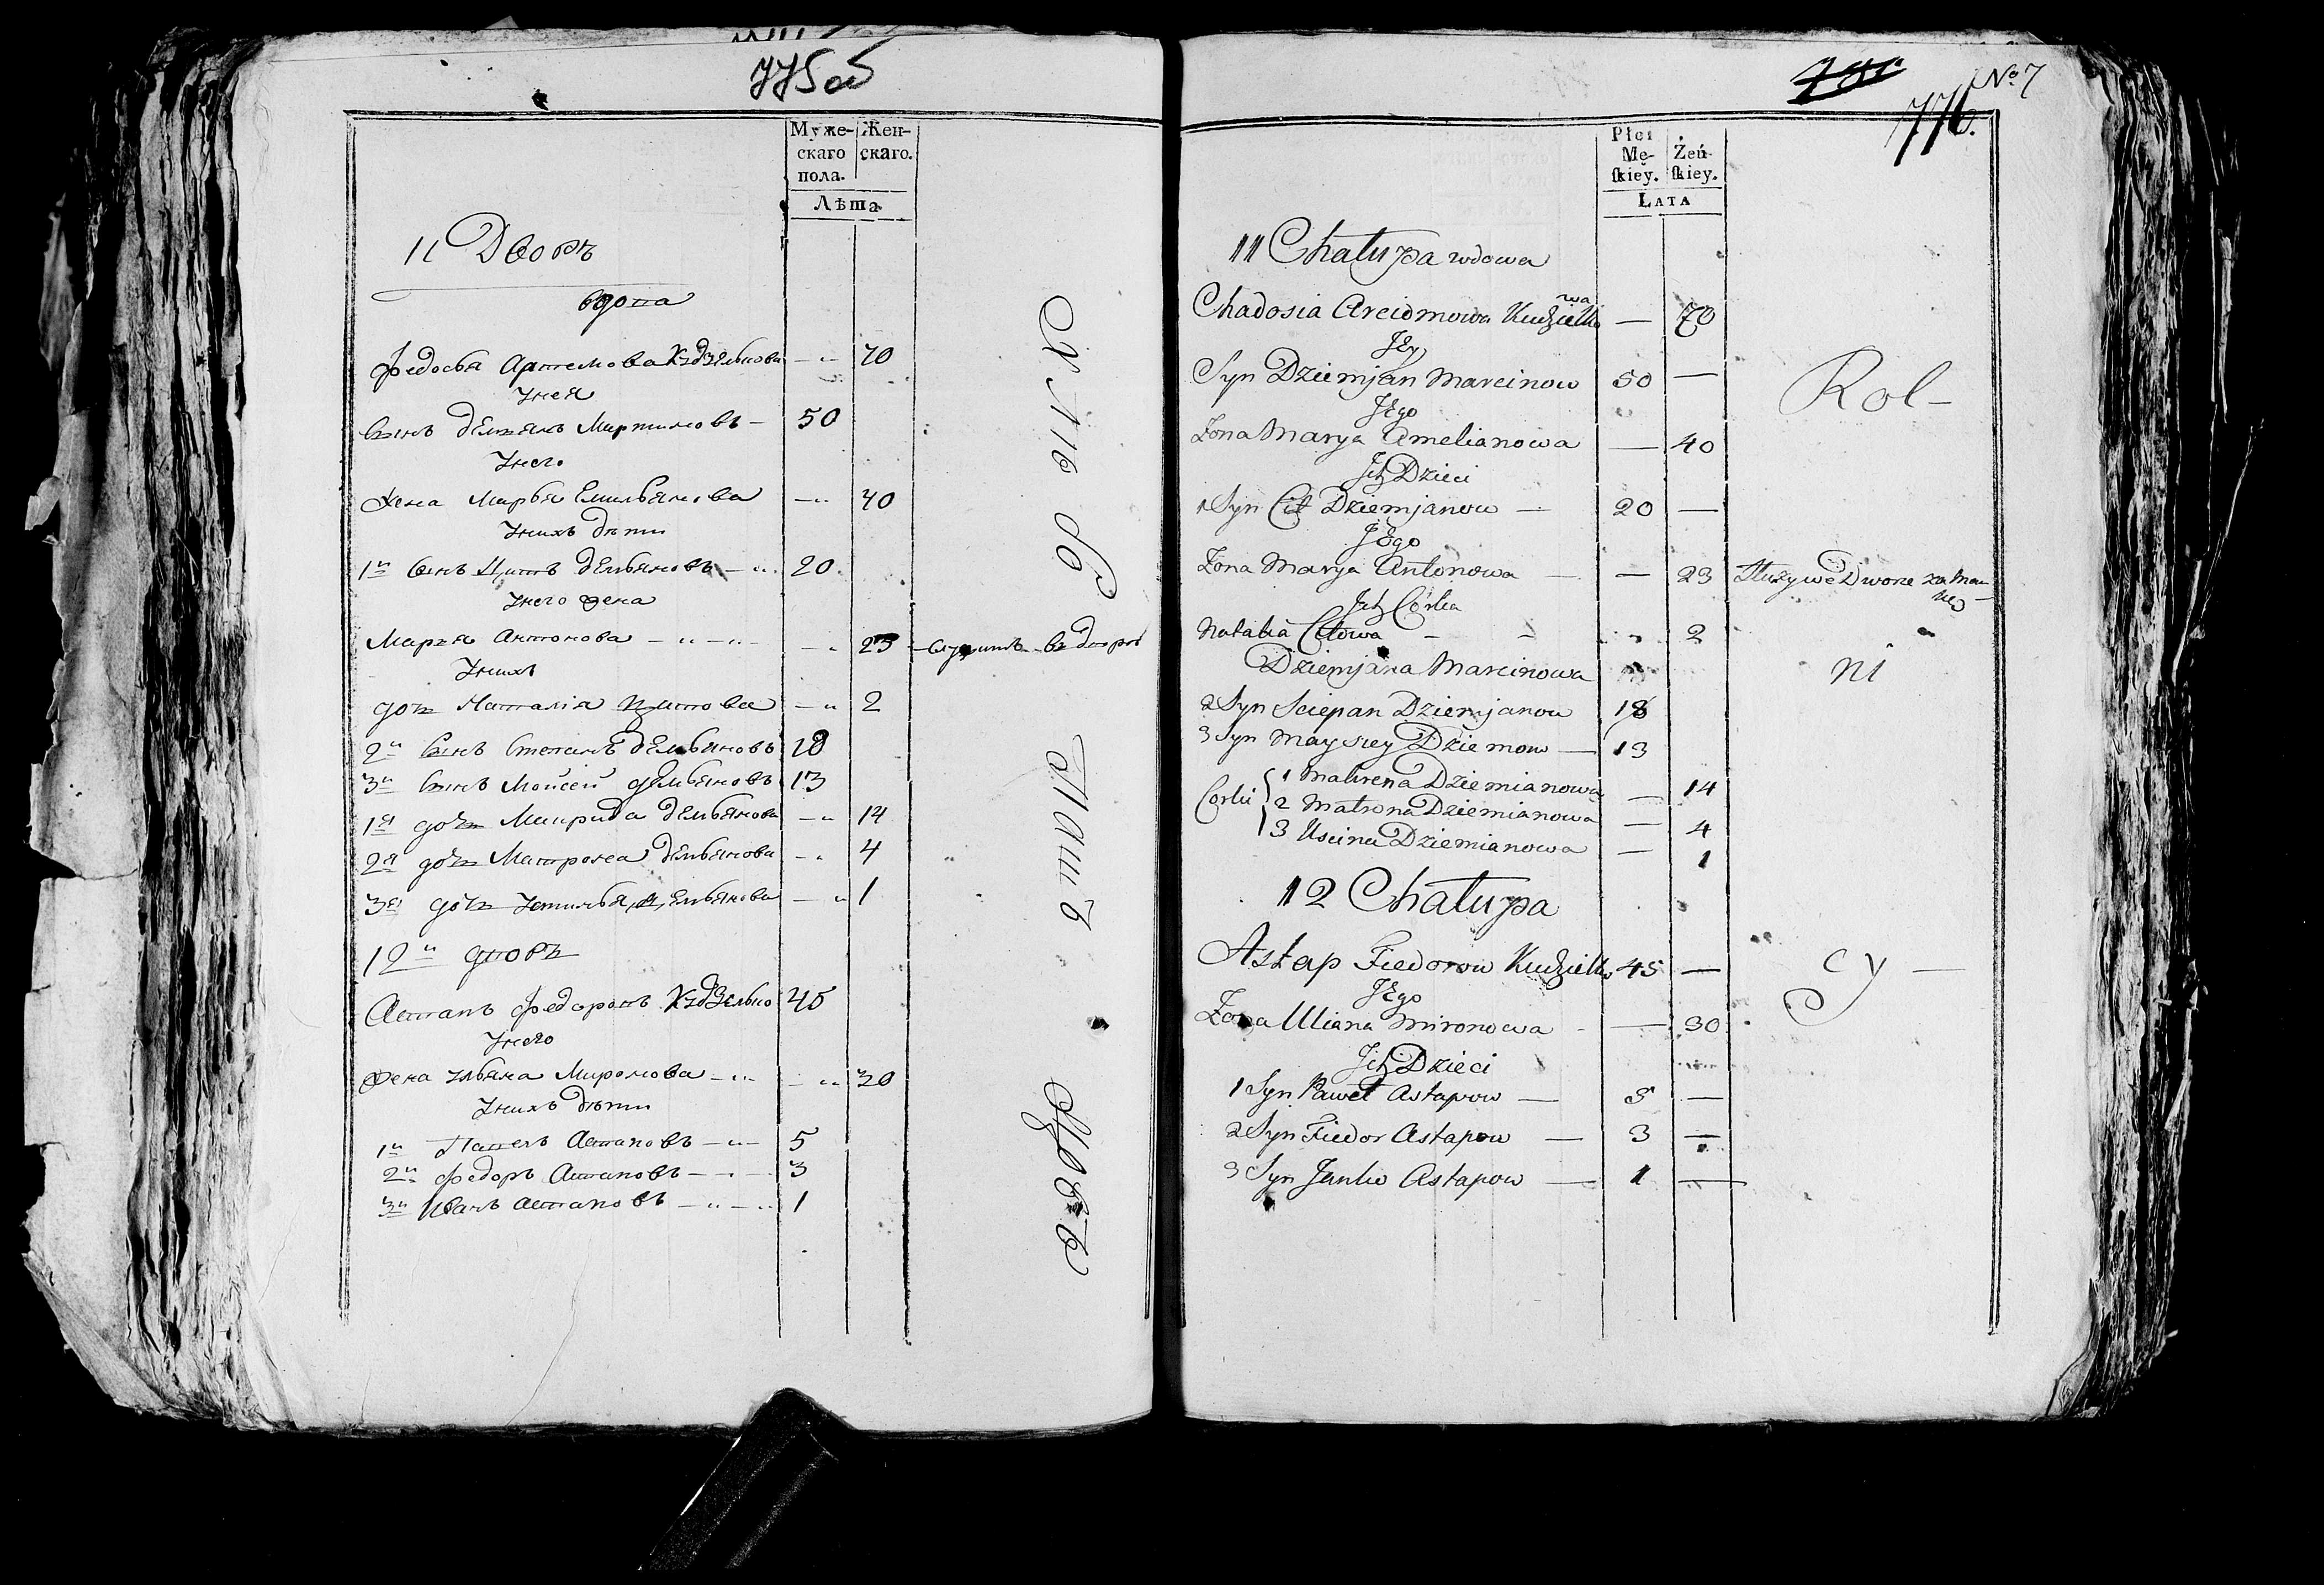 775 об
Муже-
скаго
пола.
Жен-
скаго.
Лѣта
11 Дворъ
вдова
Федосья Артемова Кудзелькова — 70
У нея
Сынъ Демьянъ Мартиновъ — 50
У него
Жена Марья Емильянова — 40
У нихъ дѣти
1й Сынъ Цитъ Демьяновъ — 20
У него жена
Марья Антонова — 23 — служитъ въ дворѣ
У нихъ
дочь Наталія Цитова — 2
2й Сынъ Степанъ Демьяновъ 18
3й Сынъ Мойсей Демьяновъ 13
1я дочь Маврида Демьянова — 14
2я дочь Матрона Демьянова — 4
3я дочь Устинья Демьянова — 1
12й дворъ
Астапъ Федоровъ Кудзелько 45
У него
Жена Ульяна Миронова — 30
У нихъ дѣти
1й Павелъ Астаповъ — 5
2й Федоръ Астаповъ — 3
3й Иванъ Астаповъ — 1
№ 7
776.
Płci
Mę-
skiey.
Żeń-
skiey.
Lata
11 Chałupa wdowa
Chadosia Arciomowa Kudzielkowa — 70
Jey
Syn Dziemjan Marcinow 50 —
Jego
Żona Marya Amelianowa — 40
Ich Dzieci
1 Syn Cit Dziemjanow — 20 —
Jego
Żona Marya Antonowa — — 23 Służy we Dworze za Mam
kę
Ich Córka
Natalia Citowa - - 2
Dziemjana Marcinowa
2 Syn Sciepan Dziemjanow 18
3 Syn Maysiey Dziemow — 13
Corki 1 Mawrena Dziemianowa — 14
2 Matrona Dziemianowa — 4
3 Uscina Dziemianowa — 1
12 Chałupa
Astap Fiedorow Kudzielko 45 —
Jego
Żona Uliana Mironowa - — 30
Ich Dzieci
1 Syn Paweł Astapow — 5 —
2 Syn Fiedor Astapow — 3 —
3 Syn Janko Astapow — 1 —
Rol-
ni
cy —